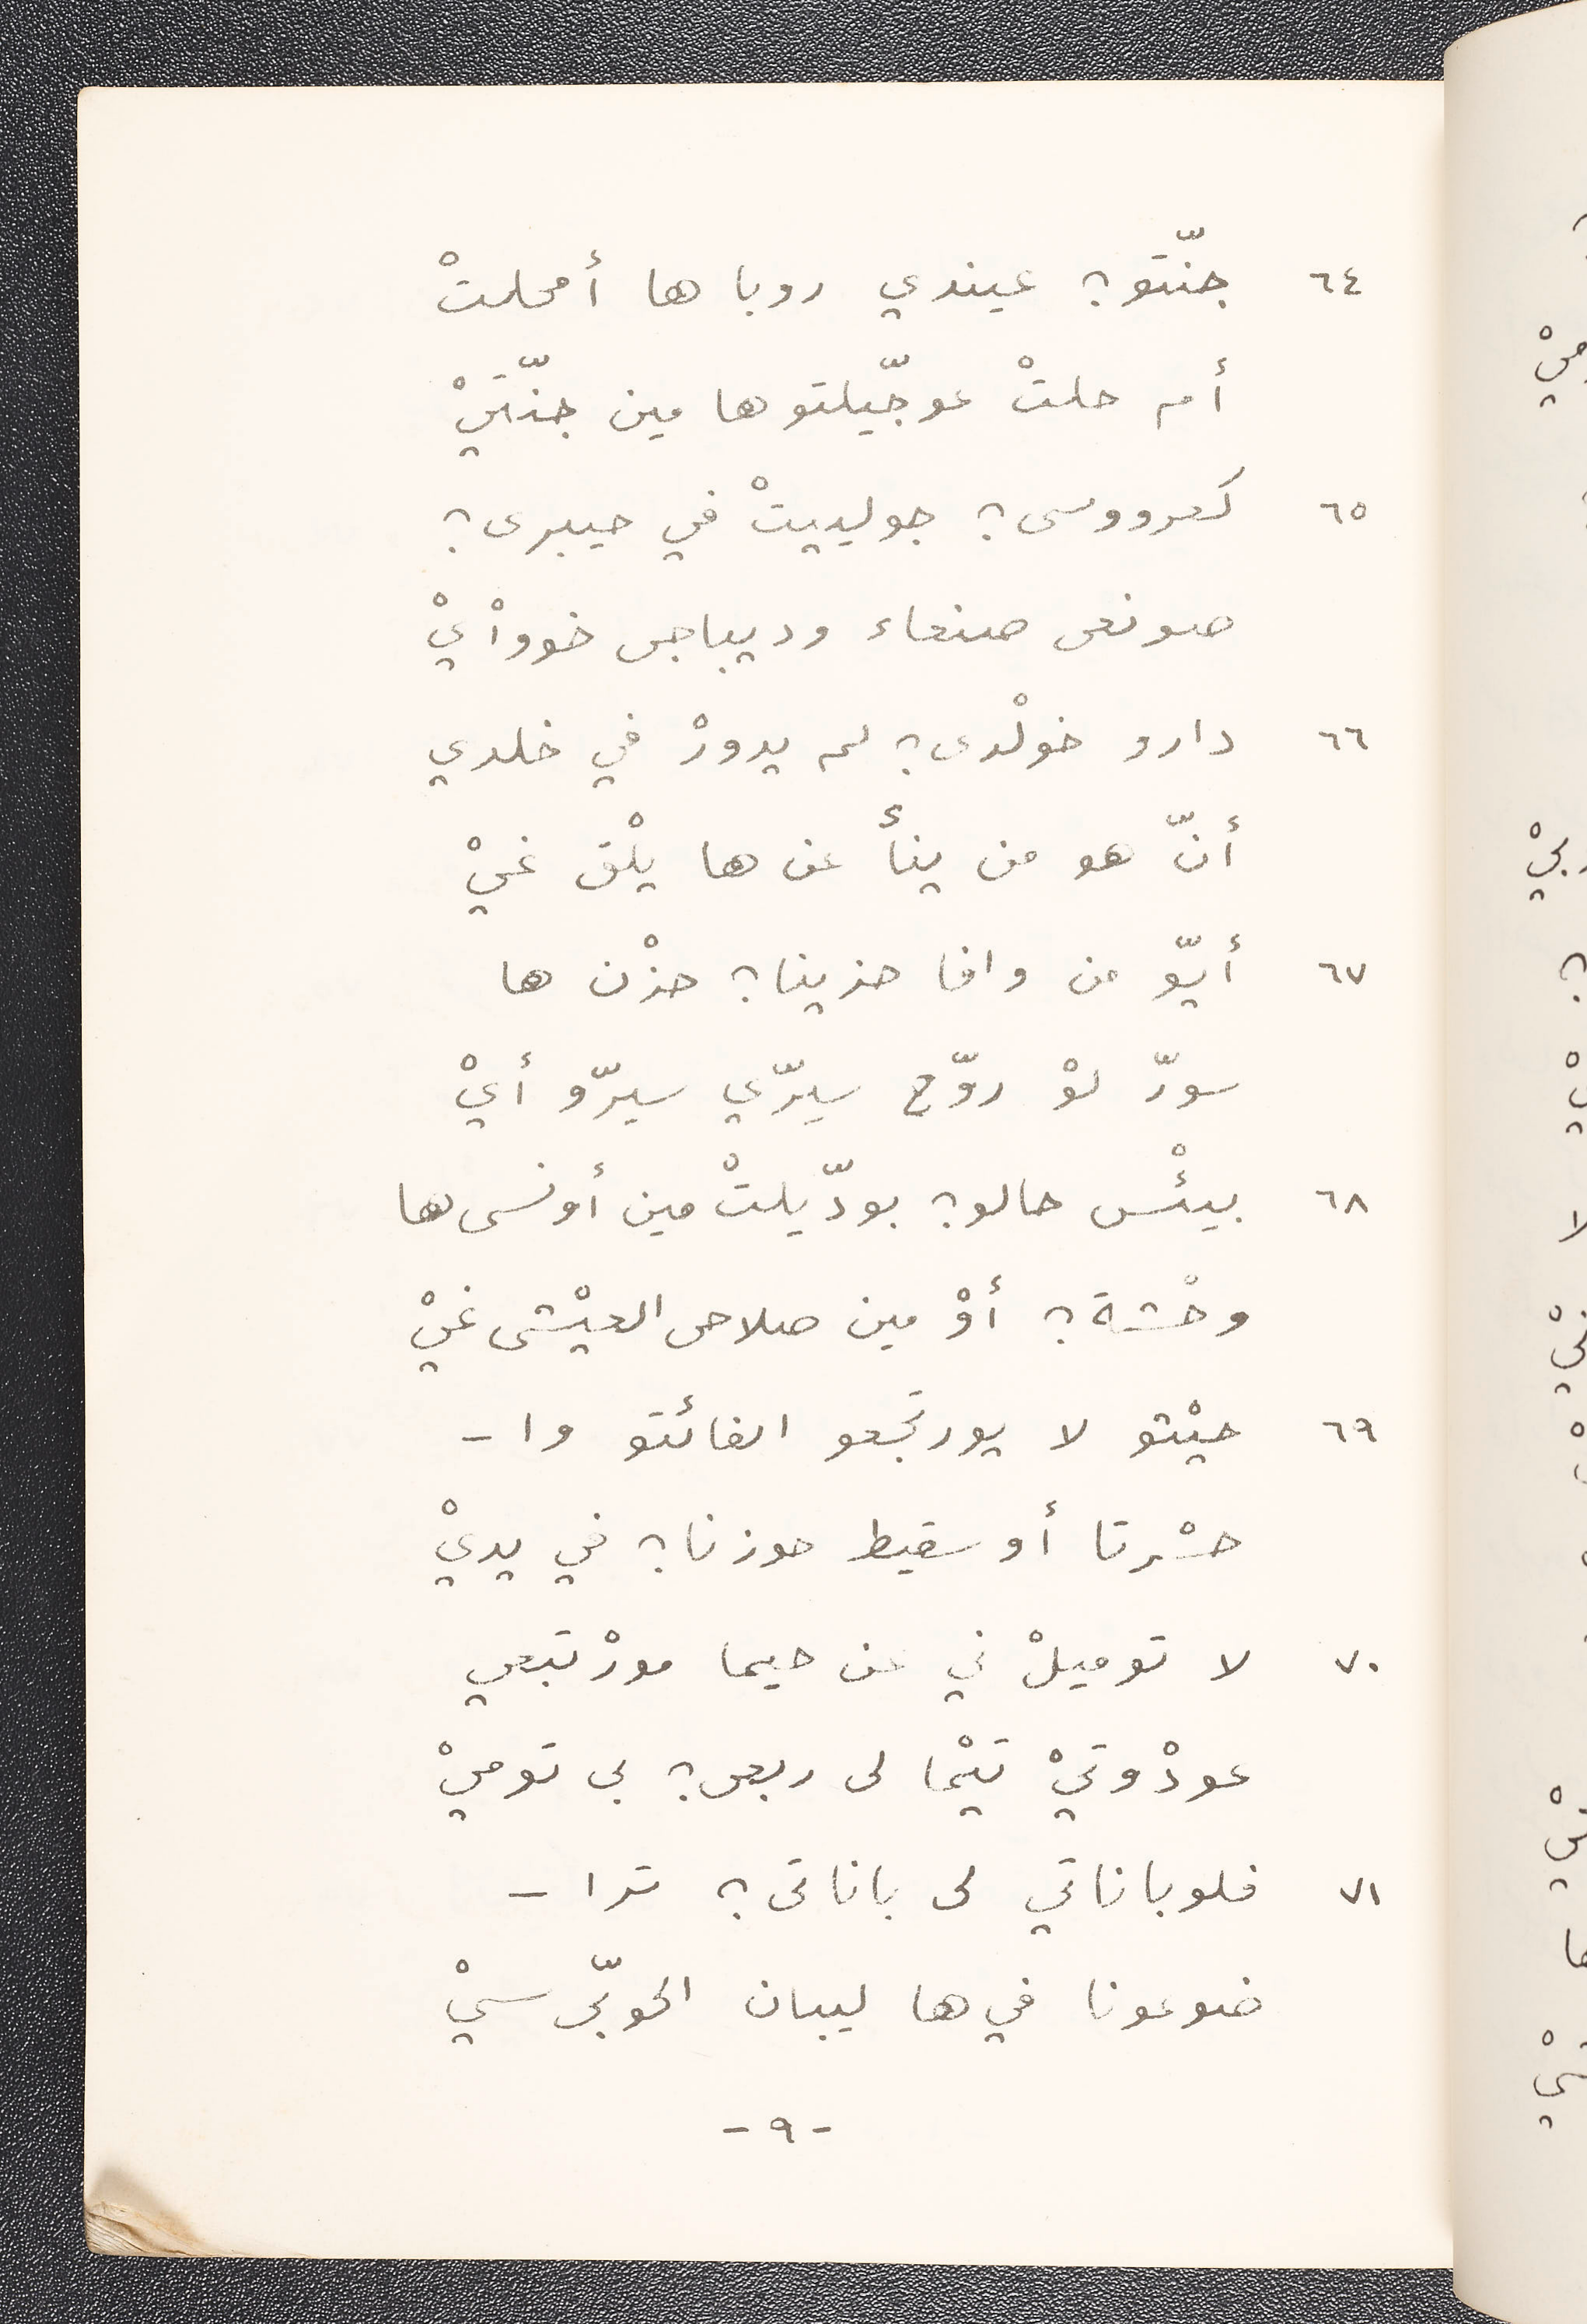 ٦٤ جنّتو؟ عيندي روبا ها أمحلتْ
أم حلتْ عوجّيلتو ها مين جنّتيْ
٦٥ كعرووسى؟ جوليييتْ في حيبرى؟
صونعى صنعاء وديباجى خووأْيْ
٦٦ دارو خولْدى؟ لم يدورْ في خلدي
أنّ هو من ينأ عن ها يلْق غيْ
٦٧ أيّو من وافا حزينا؟ حزْن ها
سورّ لوْ روّح سيرّي سيرّو أيْ
٦٨ بيئْس حالو؟ بودّيلتْ مين أونسى ها
وحْشة؟ أوْ مين صلاحى العيْشى غيْ
٦٩ حيْثو لا يورتجعو الفائتو وا -
حسْرتا أوسقيط حوزنا؟ في يديْ
٧٠ لا توميلْ ني عن حيما مورْتبعي
عودْوتيْ تيْما لى ربعى؟ بى توميْ
٧١ فلوباناتي لى باناتى؟ ترا -
ضوعونا في ها ليبان الحوبّى سيْ
- ٩ -